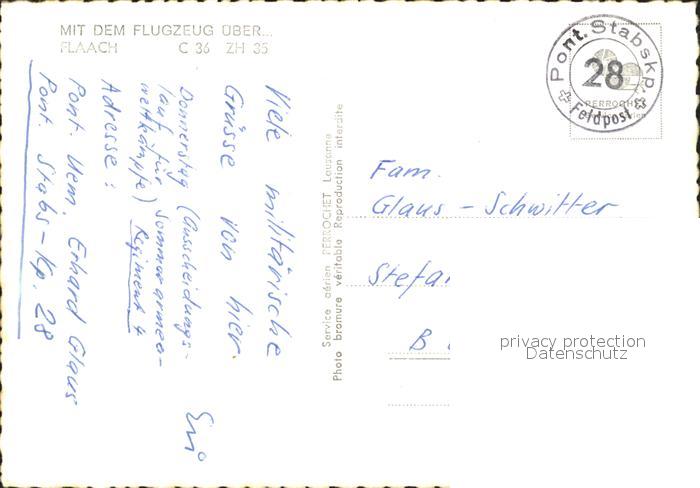 MIT DEM FLUGZEUG ÜBER...
FLAACH C 36 ZH 35
Viele militärische
Grüsse von hier.
Donnerstag (Ausscheidungs-
lauf für Sommerarmee-
wettkämpfe) Regiment 4
Erni
Adresse:
Pont. Uem. Erhard Glaus
Pont. Stabs-Kp. 28
Service aérien PERROCHET Lausanne
Photo bromure véritable Reproduction interdite
Pont. Stabskp.
28
Feldpost
PERROCHET
Fam.
Glaus - Schwitter
Stefa
B
privacy protection
Datenschutz